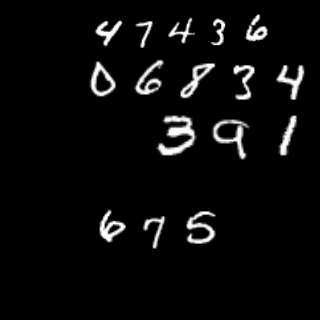 47436
06834
391
675